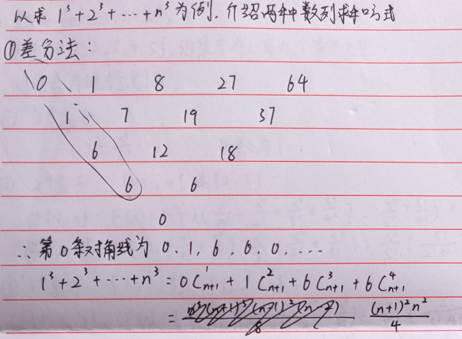 以求 1³+2³+⋯+n³ 为例,介绍两种数列求和方式
①差分法:
0 1 8 27 64
1 7 19 37
6 12 18
6 6
0
∴第0条对角线为 0,1,6,6,0,⋯⋯
1³+2³+⋯+n³ = 0C¹ₙ₊₁ + 1C²ₙ₊₁ + 6C³ₙ₊₁ + 6C⁴ₙ₊₁
= (n+1)²n²/4